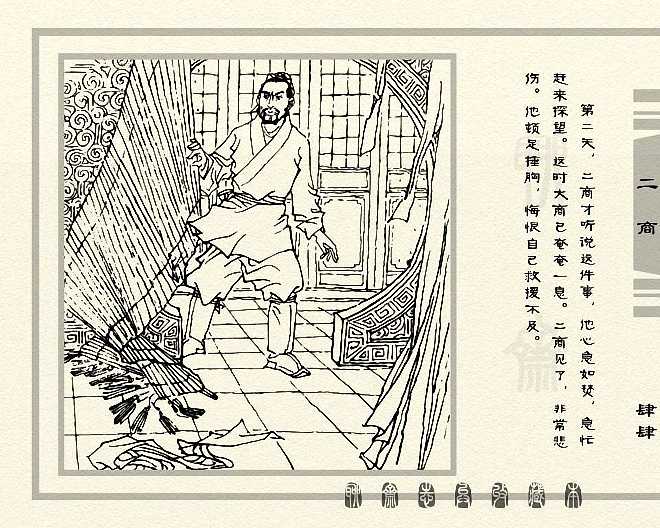 第二天，二商才听说这件事，他心急如焚，急忙
赶来探望。这时大商已奄奄一息。二商见了，非常悲
伤。他顿足捶胸，悔恨自己救援不及。
二商
肆肆